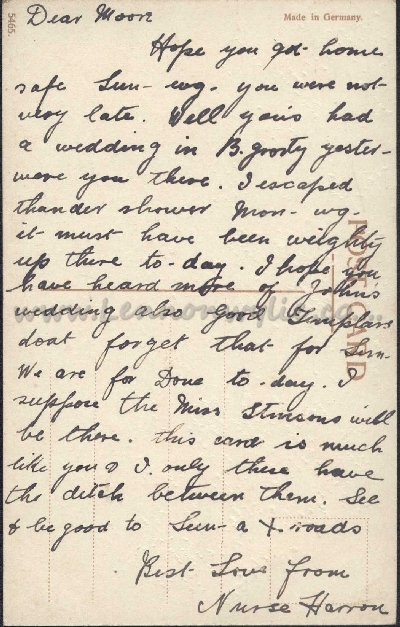 5465.
Made in Germany.
Dear Moore
Hope you got home
safe Sun-wg. you were not
very late. Well you's had
a wedding in B. yester-
were you there. I escaped
thunder shower Mon-wg.
it must have been weighty
up there to-day. I hope you
have heard more of John's
wedding also Good Templars
dont forget that for Sun-
We are for Done to-day. I
suppose the Miss Stinsons will
be there. this card is much
like you & I. only these have
the ditch between them. See
& be good to Sun- a X. roads
Best Love from
Nurse Harron
POST CARD